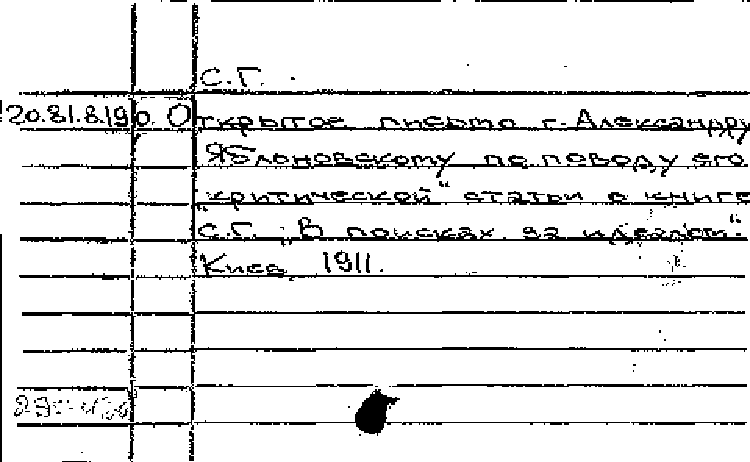 С.Г.
20.81.8.190. Открытое письмо г. Александру
Яблоновскому по поводу его
"критической" статьи о книге
С.Г. "В поисках за идеалом".
Киев 1911.